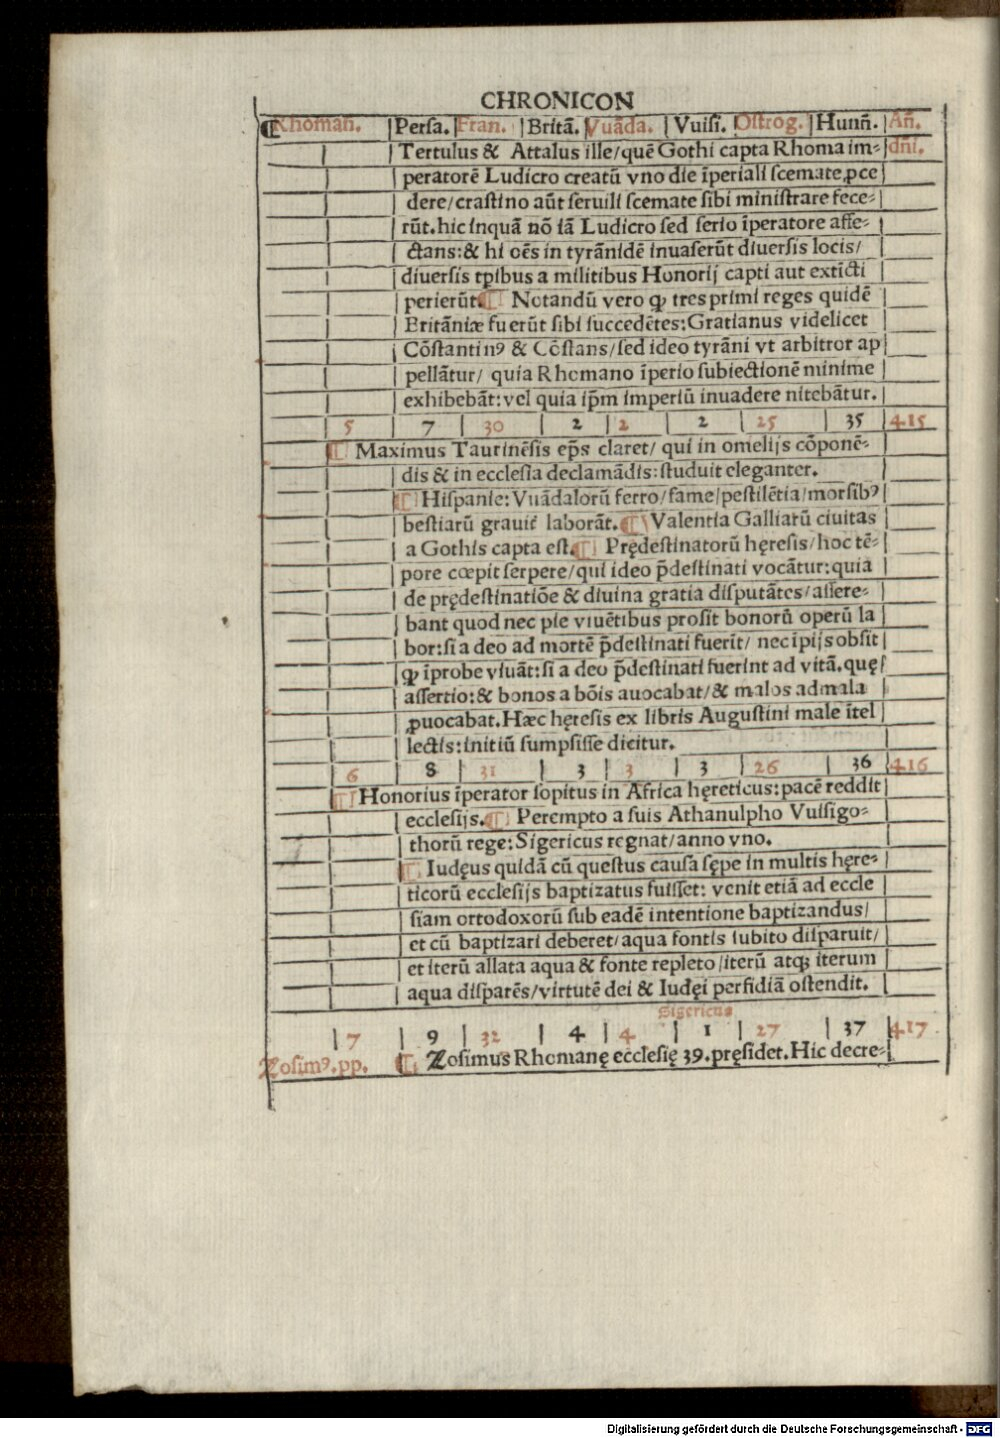 CHRONICON
Rhomañ. Persa. Fran. Britã. Vuãda. Vuisi. Ostrog. Hunñ. Añ.
Tertulus & Attalus ille/quē Gothi capta Rhoma im- dñi.
peratorē Ludicro creatū vno die īperiali scemate ꝓce
dere/crastino aūt seruili scemate sibi ministrare fece-
rūt.hic inquā nō iā Ludicro sed serio īperatore affe-
ctans:& hi oēs in tyrānidē inuaserūt diuersis locis/
diuersis tꝑibus a militibus Honorij capti aut extīcti
perierūt. ¶ Notandū vero ꝙ tres primi reges quidē
Britāniæ fuerūt sibi succedētes:Gratianus videlicet
Cōstantinꝰ & Cōstans/sed ideo tyrāni vt arbitror ap
pellātur/ quia Rhomano īperio subiectionē minime
exhibebāt:vel quia ip̄m imperiū inuadere nitebātur.
5 7 30 2 2 2 25 35 415
¶ Maximus Taurinēsis ep̄s claret/ qui in omelijs cōponē-
dis & in ecclesia declamādis:studuit eleganter.
¶ Hispanie:Vuādalorū ferro/fame/pestilētia/morsibꝰ
bestiarū grauit̄ laborāt. ¶ Valentia Galliarū ciuitas
a Gothis capta est. ¶ Prędestinatorū hęresis/hoc tē-
pore cœpit serpere/qui ideo p̄destinati vocātur:quia
de prędestinatiōe & diuina gratia disputātes/assere-
bant quod nec pie viuētibus prosit bonorū operū la
bor:si a deo ad mortē p̄destinati fuerīt/ nec īpijs obsit
ꝙ īprobe viuāt:si a deo p̄destinati fuerint ad vitā.quę
assertio:& bonos a bōis auocabat/& malos ad mala
ꝓuocabat.Hæc hęresis ex libris Augustini male ītel
lectis:initiū sumpsisse dicitur.
6 8 31 3 3 3 26 36 416
¶ Honorius īperator sopitus in Africa hęreticus:pacē reddit
ecclesijs. ¶ Perempto a suis Athanulpho Vuisigo-
thorū rege:Sigericus regnat/anno vno.
¶ Iudęus quidā cū questus causa sępe in multis hęre-
ticorū ecclesijs baptizatus fuisset: venit etiā ad eccle
siam ortodoxorū sub eadē intentione baptizandus/
et cū baptizari deberet/aqua fontis subito disparuit/
et iterū allata aqua & fonte repleto/iterū atqꝫ iterum
aqua disparēs/virtutē dei & Iudęi perfidiā ostendit.
Sigericus
7 9 32 4 4 1 27 37 417
Zosimꝰ.pp. ¶ Zosimus Rhomanę ecclesię 39.pręsidet.Hic decre-
Digitalisierung gefördert durch die Deutsche Forschungsgemeinschaft - DFG